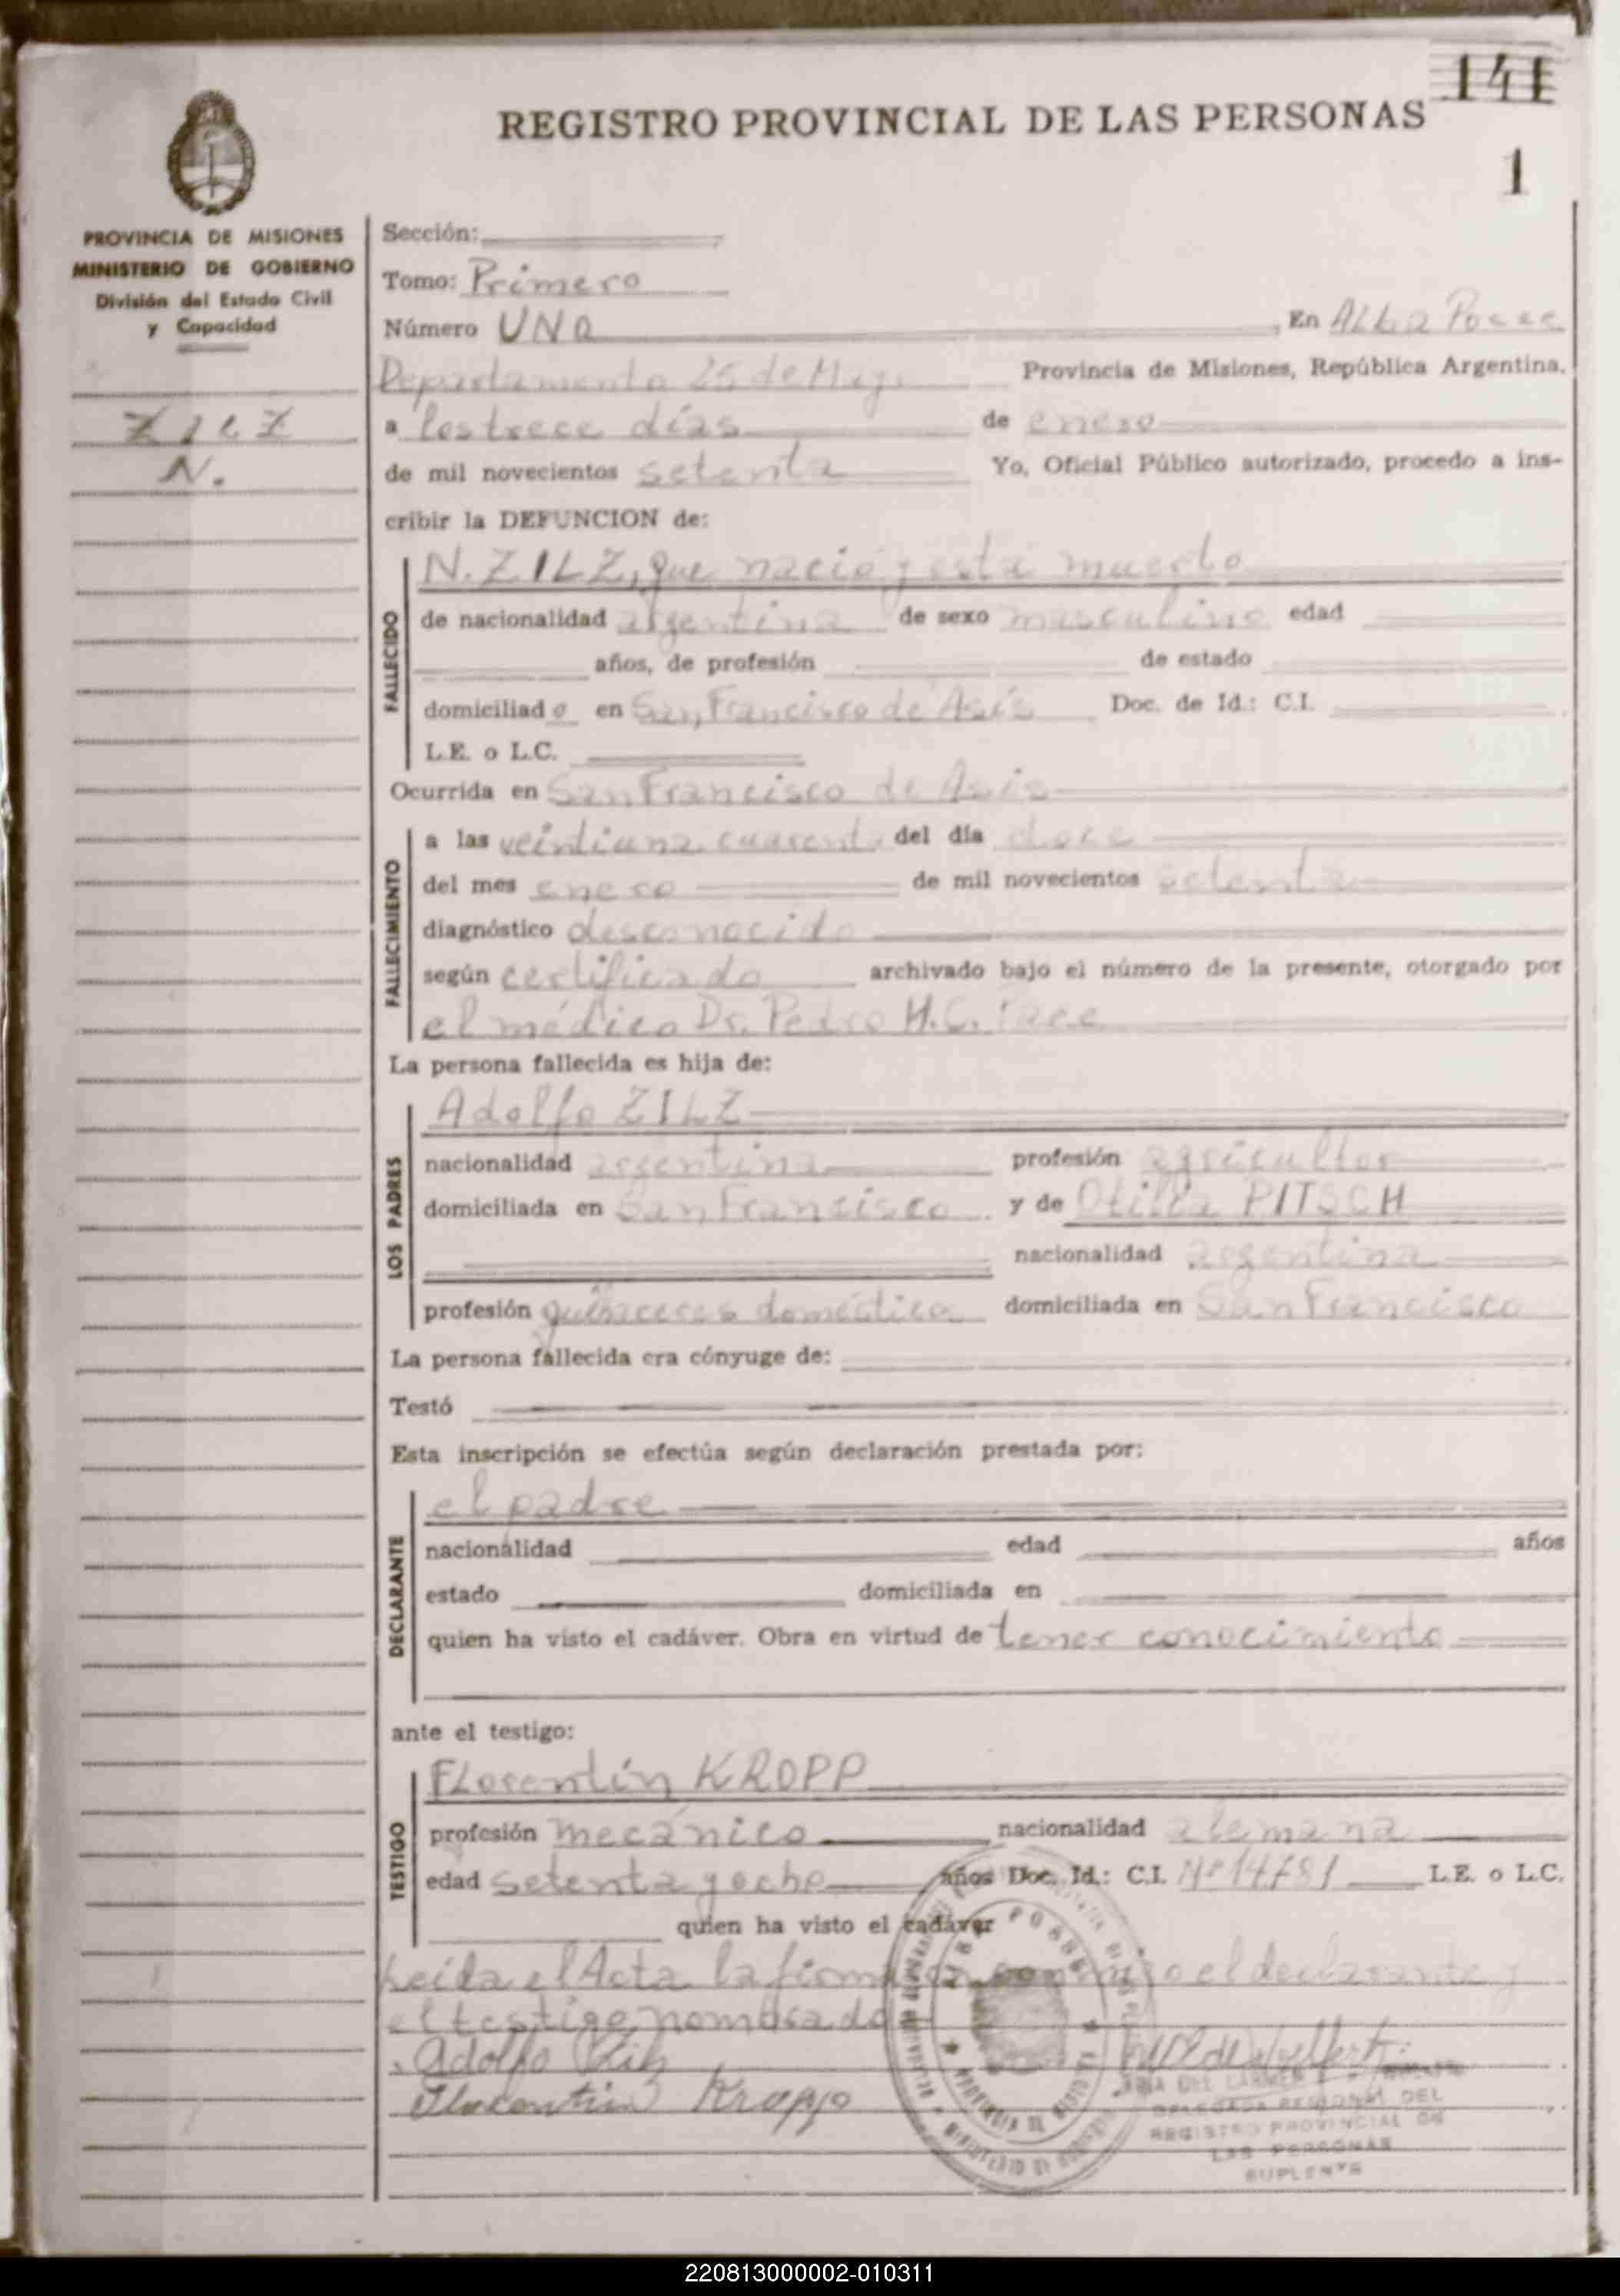 141
REGISTRO PROVINCIAL DE LAS PERSONAS
1
PROVINCIA DE MISIONES
MINISTERIO DE GOBIERNO
División del Estado Civil
y Capacidad
ZILZ
N.
Sección:
Tomo: Primero
Número UNO , En ALBA Posse
Departamento 25 de Mayo Provincia de Misiones, República Argentina,
a los trece días de enero
de mil novecientos setenta Yo, Oficial Público autorizado, procedo a ins-
cribir la DEFUNCION de:
FALLECIDO
N. ZILZ, que nació y está muerto
de nacionalidad argentina de sexo masculino edad
años, de profesión de estado
domiciliado en San Francisco de Asís Doc. de Id.: C.I.
L.E. o L.C.
Ocurrida en San Francisco de Asís
FALLECIMIENTO
a las veintiuna cuarenta del día doce
del mes enero de mil novecientos setenta
diagnóstico desconocido
según certificado archivado bajo el número de la presente, otorgado por
el médico Dr. Pedro H.C.
La persona fallecida es hija de:
LOS PADRES
Adolfo ZILZ
nacionalidad argentina profesión agricultor
domiciliada en San Francisco y de Otilia PITSCH
nacionalidad argentina
profesión quehaceres domésticos domiciliada en San Francisco
La persona fallecida era cónyuge de:
Testó
Esta inscripción se efectúa según declaración prestada por:
DECLARANTE
el padre
nacionalidad edad años
estado domiciliada en
quien ha visto el cadáver. Obra en virtud de tener conocimiento
ante el testigo:
TESTIGO
Florentín KROPP
profesión mecánico nacionalidad alemana
edad setenta y ocho años Doc. Id.: C.I. Nº 14781 L.E. o L.C.
quien ha visto el cadáver
Leída el Acta la firman conmigo el declarante y
el testigo nombrado
Adolfo Zilz
Florentin Kropp
DELEGADA REGIONAL DEL
REGISTRO PROVINCIAL DE
LAS PERSONAS
SUPLENTE
220813000002-010311